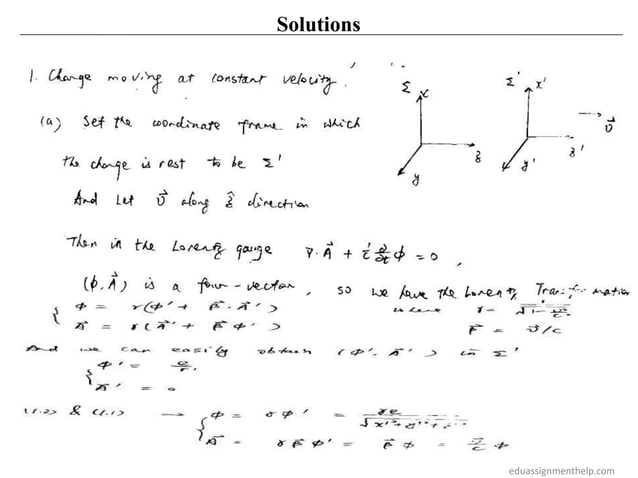 Solutions
1. Charge moving at constant velocity.
(a) Set the coordinate frame in which
the charge is rest to be Σ'
And Let v⃗ along ẑ direction
Then in the Lorentz gauge ∇·A⃗ + 1/c ∂/∂t ϕ = 0,
(ϕ, A⃗) is a four-vector, so we have the Lorentz Transformation
{ ϕ = γ(ϕ' + β⃗·A⃗') where γ =
A⃗ = γ(A⃗' + β⃗ϕ') β⃗ = v⃗/c
And we can easily obtain (ϕ', A⃗') in Σ'
{ ϕ' = e/r'
A⃗' = 0
(1.2) & (1.1) → { ϕ = γϕ' = γe/
A⃗ = γβ⃗ϕ' = β⃗ϕ = v⃗/c ϕ
Σ x z y
Σ' x' z' y' v⃗
eduassignmenthelp.com